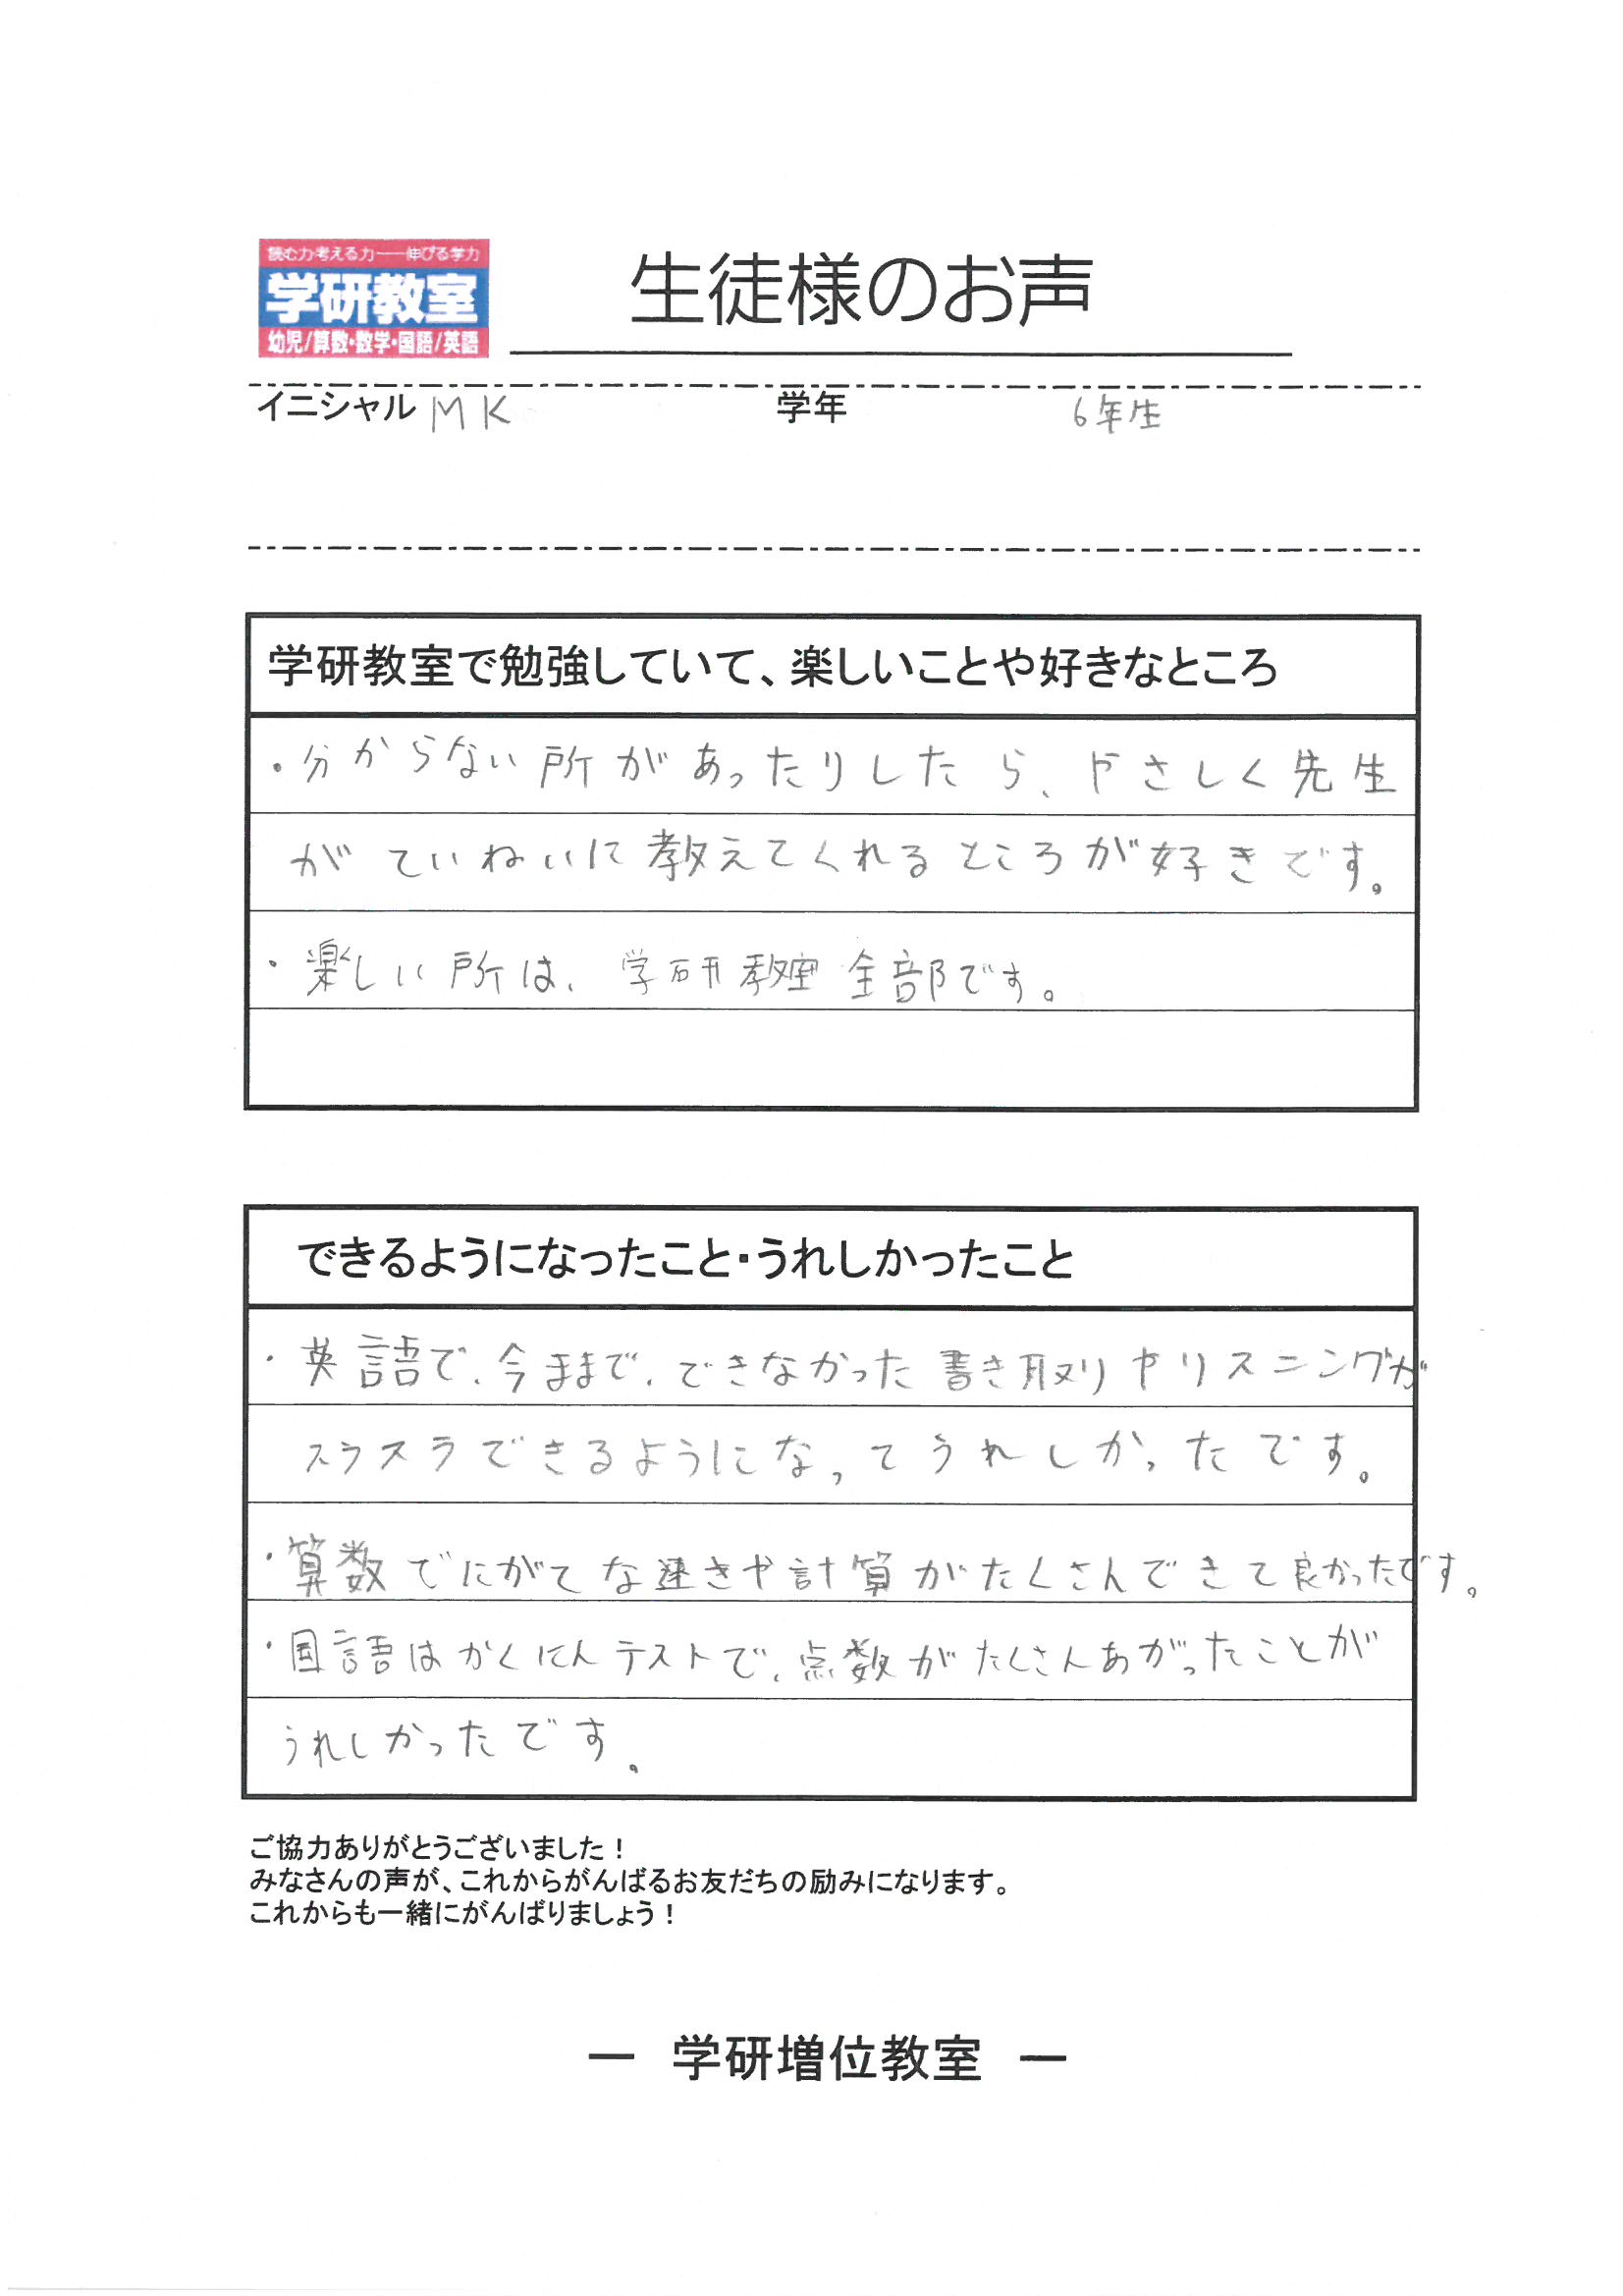 読む力考える力――伸びる学力
学研教室
幼児/算数・数学・国語/英語
生徒様のお声
イニシャル MK 学年 6年生
学研教室で勉強していて、楽しいことや好きなところ
・分からない所があったりしたら、やさしく先生
がていねいに教えてくれるところが好きです。
・楽しい所は、学研教室全部です。
できるようになったこと・うれしかったこと
・英語で、今ままで、できなかった書き取りやリスニングが
スラスラできるようになってうれしかったです。
・算数でにがてな速きや計算がたくさんできて良かったです。
・国語はかくにんテストで、点数がたくさんあがったことが
うれしかったです。
ご協力ありがとうございました！
みなさんの声が、これからがんばるお友だちの励みになります。
これからも一緒にがんばりましょう！
― 学研増位教室 ―